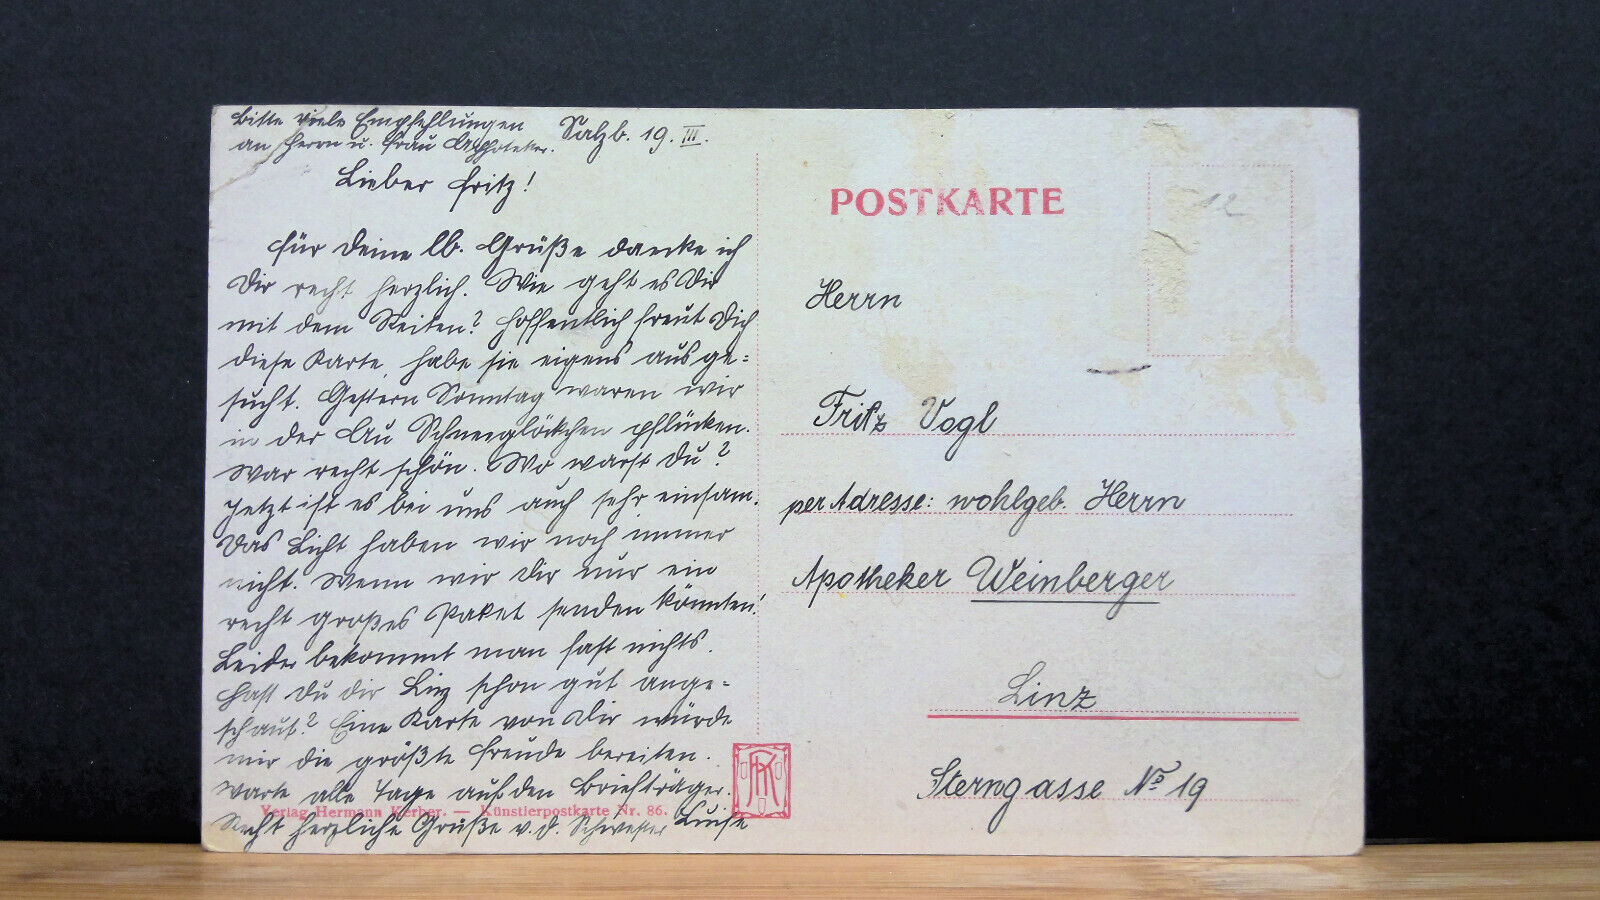 Bitte viele Empfehlungen
an Herrn u. Frau Apotheker.
Salzb. 19. III.
Lieber Fritz!
Für Deine lb. Grüße danke ich
Dir recht herzlich. Wie geht es Dir
mit dem Reiten? Hoffentlich freut Dich
diese Karte, habe sie eigens ausge=
sucht. Gestern Sonntag waren wir
in der Au Schneeglöckchen pflücken.
War recht schön. Wo warst Du?
Jetzt ist es bei uns auch sehr einsam.
Das Licht haben wir noch immer
nicht. Wenn wir Dir nur ein
recht großes Paket senden könnten!
Leider bekommt man fast nichts.
Hast Du dir Linz schon gut ange-
schaut? Eine Karte von Dir würde
mir die größte Freude bereiten.
Warte alle Tage auf den Briefträger.
Verlag Hermann Kerber. — Künstlerpostkarte Nr. 86.
Recht herzliche Grüße v. d. Schwester Luise
POSTKARTE
12
Herrn
Fritz Vogl
per Adresse: wohlgeb. Herrn
Apotheker Weinberger
Linz
Sterngasse No 19